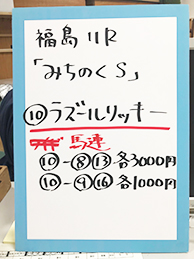 福島11R
「みちのくS」
⑩ラズールリッキー
馬連
⑩-⑧⑬各3000円
⑩-⑨⑯各1000円